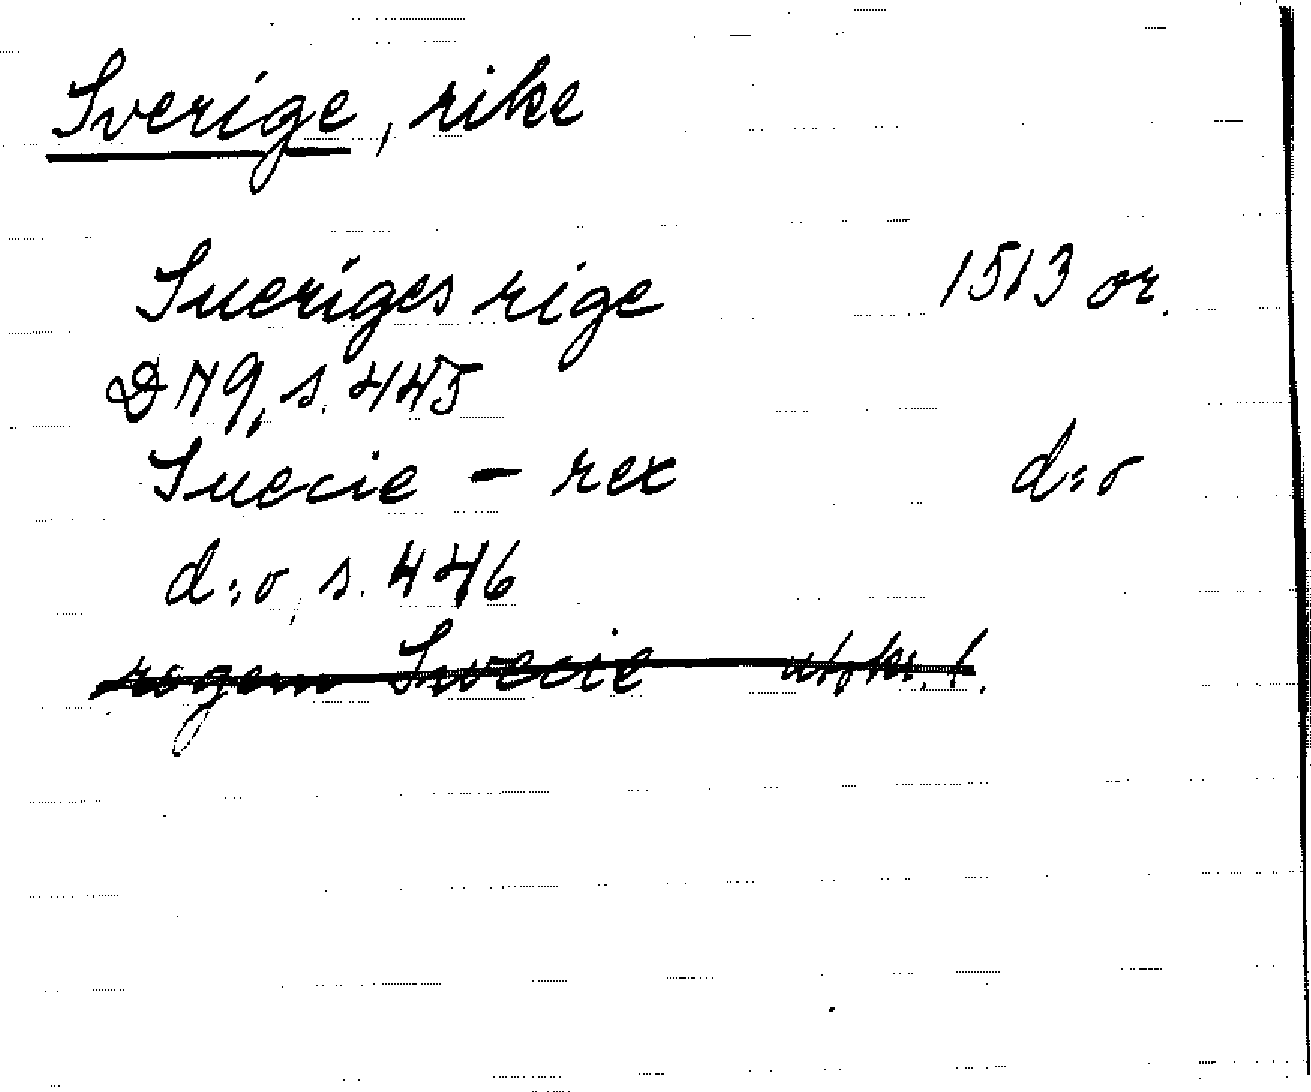 Sverige, rike
Sueriges rige 1513 or.
D 79, s. 445
Suecie - rex d:o
d:o, s. 446
regem Svecie